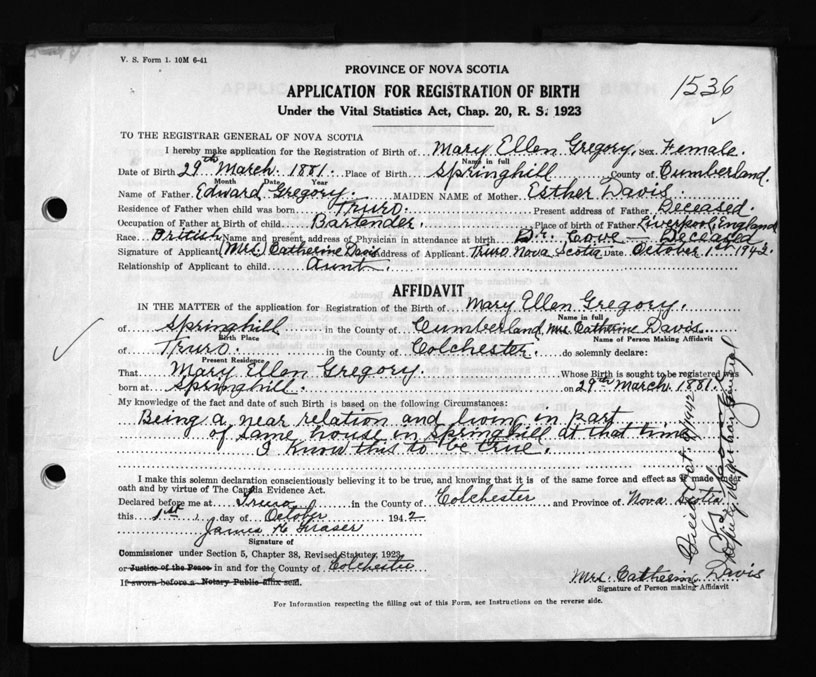 V. S. Form 1. 10M 6-41
PROVINCE OF NOVA SCOTIA
APPLICATION FOR REGISTRATION OF BIRTH
1536
Under the Vital Statistics Act, Chap. 20, R. S. 1923
TO THE REGISTRAR GENERAL OF NOVA SCOTIA
I hereby make application for the Registration of Birth of Mary Ellen Gregory, Sex Female.
Name in full
Date of Birth 29th March 1881. Place of Birth Springhill County of Cumberland.
Month Date Year
Name of Father Edward Gregory. MAIDEN NAME of Mother Esther Davis.
Residence of Father when child was born Truro. Present address of Father Deceased.
Occupation of Father at Birth of child Bartender. Place of birth of Father Liverpool, England
Race British Name and present address of Physician in attendance at birth Dr. Cove Deceased
Signature of Applicant (Mrs.) Catherine Davis Address of Applicant Truro Nova Scotia Date October 1st 1942.
Relationship of Applicant to child Aunt.
AFFIDAVIT
IN THE MATTER of the application for Registration of the Birth of Mary Ellen Gregory.
Name in full
of Springhill in the County of Cumberland, Mrs. Catherine Davis.
Birth Place Name of Person Making Affidavit
of Truro. in the County of Colchester. do solemnly declare:
Present Residence
That Mary Ellen Gregory. Whose Birth is sought to be registered was
born at Springhill. on 29th March 1881.
My knowledge of the fact and date of such Birth is based on the following Circumstances:
Being a near relation and living in part
of same house in Springhill at that time
I know this to be true.
I make this solemn declaration conscientiously believing it to be true, and knowing that it is of the same force and effect as if made under
oath and by virtue of The Canada Evidence Act.
Declared before me at Truro in the County of Colchester and Province of Nova Scotia
this 1st day of October 1942
James H Fraser
Signature of
Commissioner under Section 5, Chapter 38, Revised Statutes, 1923
or Justice of the Peace in and for the County of Colchester
If sworn before a Notary Public affix seal.
Mrs. Catherine Davis
Signature of Person making Affidavit
For Information respecting the filling out of this Form, see Instructions on the reverse side.
Filed Oct. 1942
Deputy Registrar General